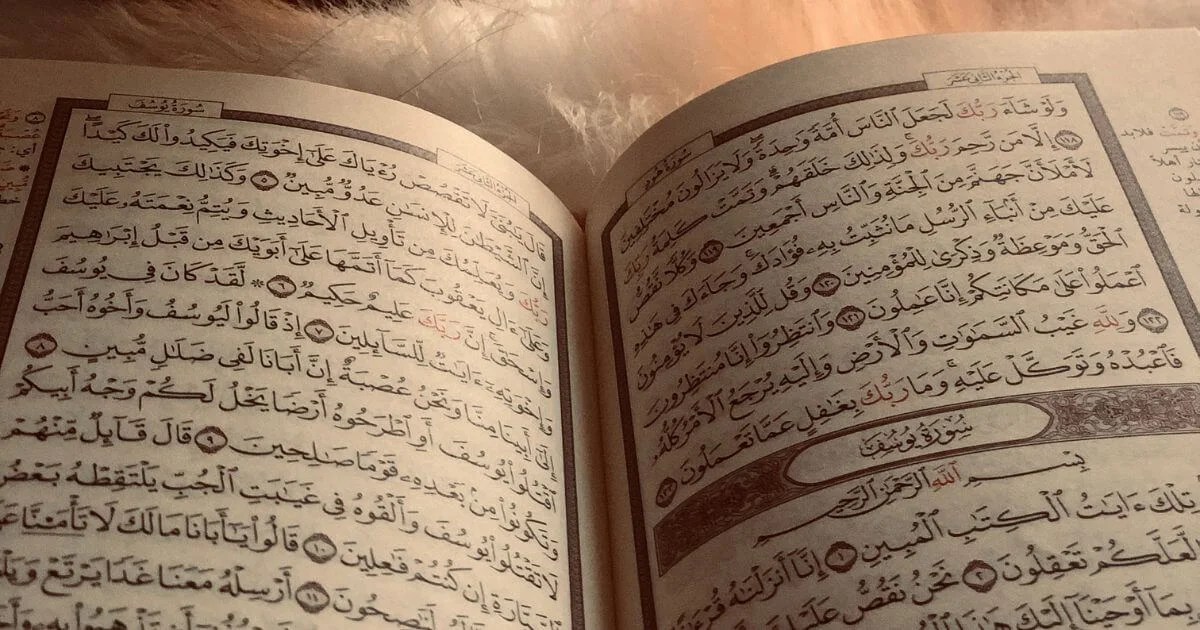 الجزء الثاني عشر
سورة هود
وَلَوْ شَآءَ رَبُّكَ لَجَعَلَ ٱلنَّاسَ أُمَّةً وَٰحِدَةً ۖ وَلَا يَزَالُونَ مُخْتَلِفِينَ
١١٨ إِلَّا مَن رَّحِمَ رَبُّكَ ۚ وَلِذَٰلِكَ خَلَقَهُمْ ۗ وَتَمَّتْ كَلِمَةُ رَبِّكَ
لَأَمْلَأَنَّ جَهَنَّمَ مِنَ ٱلْجِنَّةِ وَٱلنَّاسِ أَجْمَعِينَ ١١٩ وَكُلًّا نَّقُصُّ
عَلَيْكَ مِنْ أَنۢبَآءِ ٱلرُّسُلِ مَا نُثَبِّتُ بِهِۦ فُؤَادَكَ ۚ وَجَآءَكَ فِى هَٰذِهِ
ٱلْحَقُّ وَمَوْعِظَةٌ وَذِكْرَىٰ لِلْمُؤْمِنِينَ ١٢٠ وَقُل لِّلَّذِينَ لَا يُؤْمِنُونَ
ٱعْمَلُوا۟ عَلَىٰ مَكَانَتِكُمْ إِنَّا عَٰمِلُونَ ١٢١ وَٱنتَظِرُوٓا۟ إِنَّا مُنتَظِرُونَ
١٢٢ وَلِلَّهِ غَيْبُ ٱلسَّمَٰوَٰتِ وَٱلْأَرْضِ وَإِلَيْهِ يُرْجَعُ ٱلْأَمْرُ كُلُّهُۥ
فَٱعْبُدْهُ وَتَوَكَّلْ عَلَيْهِ ۚ وَمَا رَبُّكَ بِغَٰفِلٍ عَمَّا تَعْمَلُونَ ١٢٣
سُورَةُ يُوسُفَ
بِسْمِ ٱللَّهِ ٱلرَّحْمَٰنِ ٱلرَّحِيمِ
تِلْكَ ءَايَٰتُ ٱلْكِتَٰبِ ٱلْمُبِينِ ١ إِنَّآ أَنزَلْنَٰهُ قُرْءَٰنًا
لَّعَلَّكُمْ تَعْقِلُونَ ٢ نَحْنُ نَقُصُّ عَلَيْكَ
بِمَآ أَوْحَيْنَآ إِلَيْكَ هَٰذَا
سورة يوسف
الجزء الثاني عشر
قَالَ يَٰبُنَىَّ لَا تَقْصُصْ رُءْيَاكَ عَلَىٰٓ إِخْوَتِكَ فَيَكِيدُوا۟ لَكَ كَيْدًا ۖ
إِنَّ ٱلشَّيْطَٰنَ لِلْإِنسَٰنِ عَدُوٌّ مُّبِينٌ ٥ وَكَذَٰلِكَ يَجْتَبِيكَ
رَبُّكَ وَيُعَلِّمُكَ مِن تَأْوِيلِ ٱلْأَحَادِيثِ وَيُتِمُّ نِعْمَتَهُۥ عَلَيْكَ
وَعَلَىٰٓ ءَالِ يَعْقُوبَ كَمَآ أَتَمَّهَا عَلَىٰٓ أَبَوَيْكَ مِن قَبْلُ إِبْرَٰهِيمَ
وَإِسْحَٰقَ ۚ إِنَّ رَبَّكَ عَلِيمٌ حَكِيمٌ ٦ * لَّقَدْ كَانَ فِى يُوسُفَ
وَإِخْوَتِهِۦٓ ءَايَٰتٌ لِّلسَّآئِلِينَ ٧ إِذْ قَالُوا۟ لَيُوسُفُ وَأَخُوهُ أَحَبُّ
إِلَىٰٓ أَبِينَا مِنَّا وَنَحْنُ عُصْبَةٌ إِنَّ أَبَانَا لَفِى ضَلَٰلٍ مُّبِينٍ ٨
ٱقْتُلُوا۟ يُوسُفَ أَوِ ٱطْرَحُوهُ أَرْضًا يَخْلُ لَكُمْ وَجْهُ أَبِيكُمْ
وَتَكُونُوا۟ مِنۢ بَعْدِهِۦ قَوْمًا صَٰلِحِينَ ٩ قَالَ قَآئِلٌ مِّنْهُمْ
لَا تَقْتُلُوا۟ يُوسُفَ وَأَلْقُوهُ فِى غَيَٰبَتِ ٱلْجُبِّ يَلْتَقِطْهُ بَعْضُ
ٱلسَّيَّارَةِ إِن كُنتُمْ فَٰعِلِينَ ١٠ قَالُوا۟ يَٰٓأَبَانَا مَا لَكَ لَا تَأْمَ۫نَّا
لَنَٰصِحُونَ ١١ أَرْسِلْهُ مَعَنَا غَدًا يَرْتَعْ